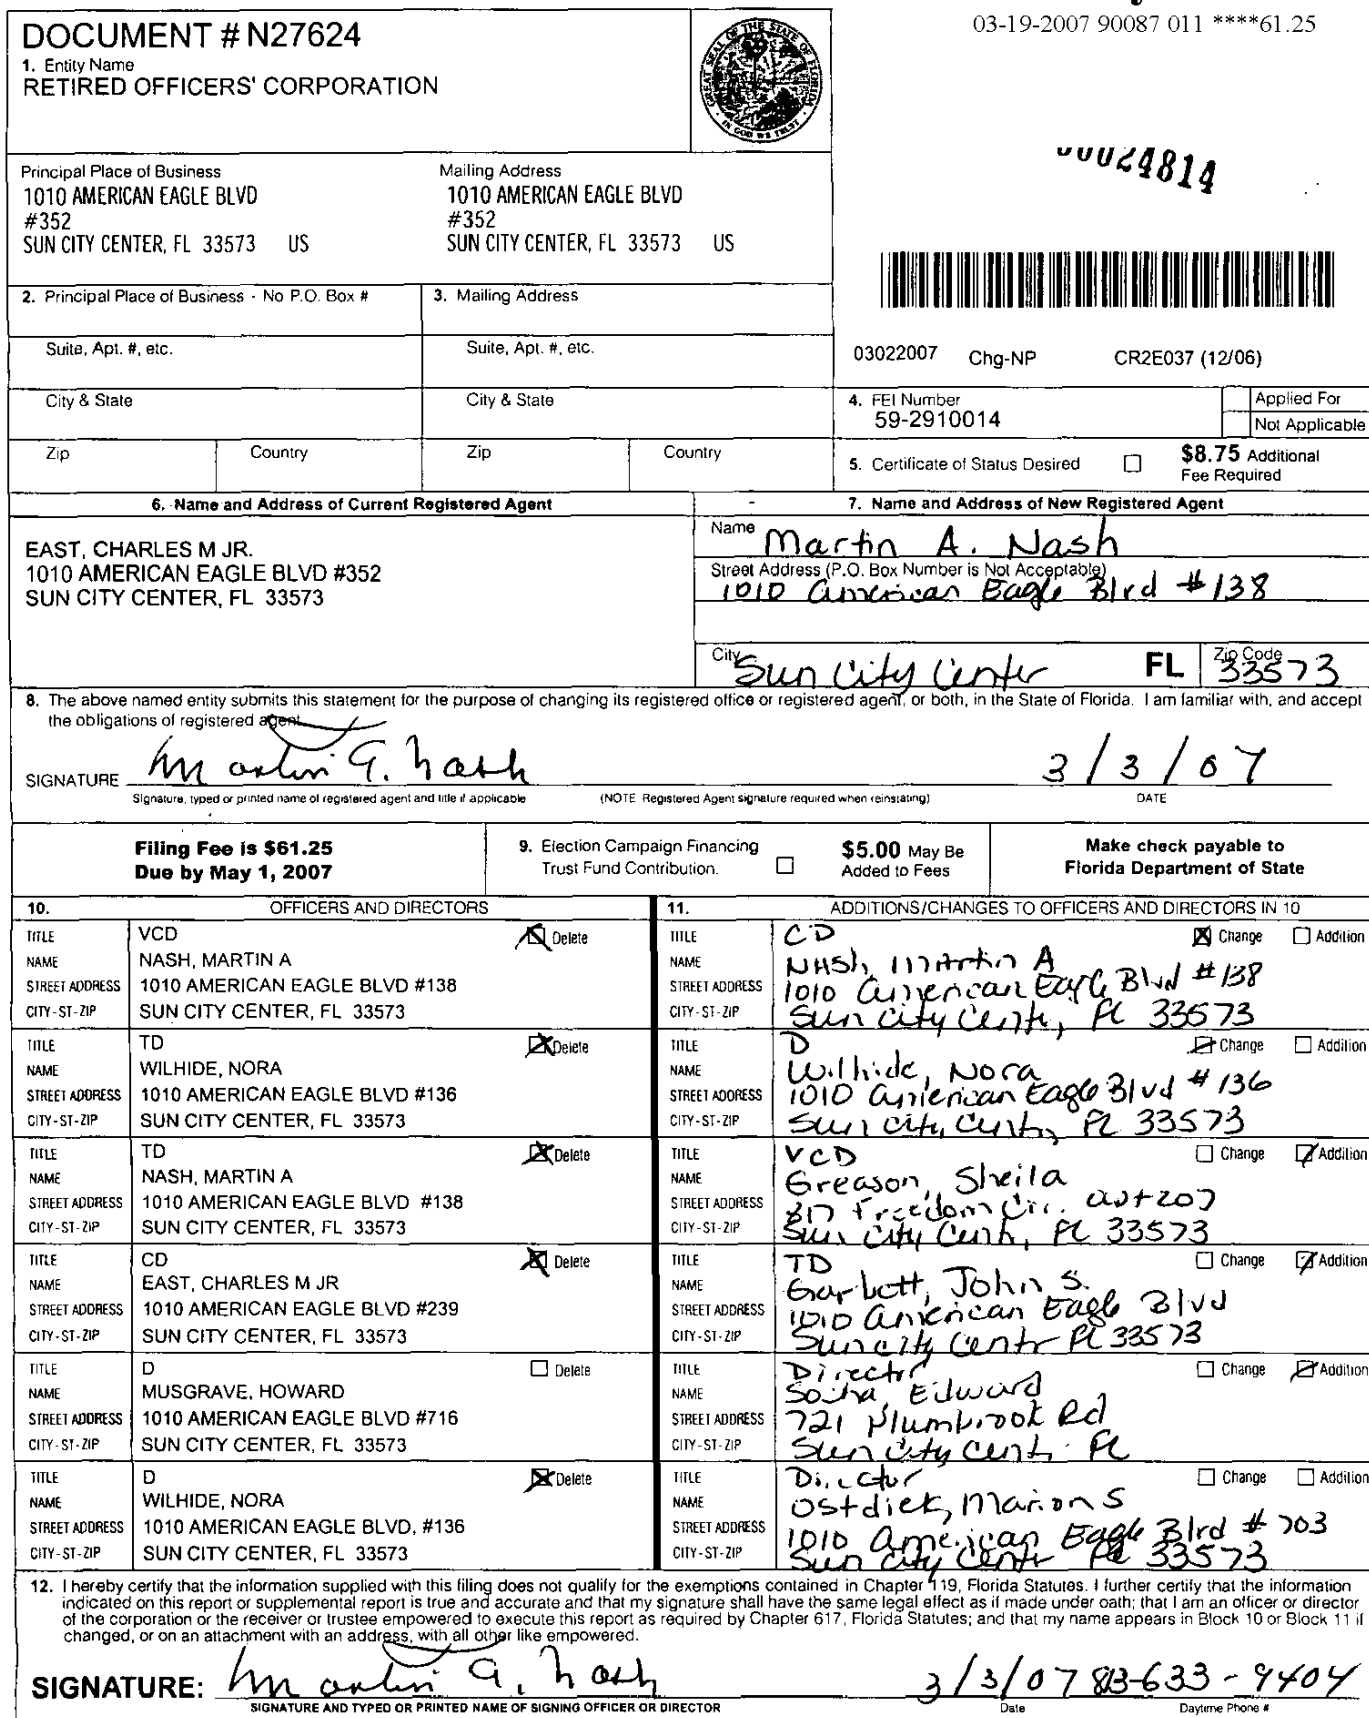 03-19-2007 90087 011 ****61.25
DOCUMENT # N27624
1. Entity Name
RETIRED OFFICERS' CORPORATION
GREAT SEAL OF THE STATE OF FLORIDA
IN GOD WE TRUST
00024814
Principal Place of Business
1010 AMERICAN EAGLE BLVD
#352
SUN CITY CENTER, FL 33573 US
Mailing Address
1010 AMERICAN EAGLE BLVD
#352
SUN CITY CENTER, FL 33573 US
2. Principal Place of Business - No P.O. Box #
3. Mailing Address
Suite, Apt. #, etc.
Suite, Apt. #, etc.
03022007 Chg-NP CR2E037 (12/06)
City & State
City & State
4. FEI Number
59-2910014
Applied For
Not Applicable
Zip
Country
Zip
Country
5. Certificate of Status Desired
$8.75 Additional
Fee Required
6. Name and Address of Current Registered Agent
EAST, CHARLES M JR.
1010 AMERICAN EAGLE BLVD #352
SUN CITY CENTER, FL 33573
7. Name and Address of New Registered Agent
Name Martin A. Nash
Street Address (P.O. Box Number is Not Acceptable)
1010 American Eagle Blvd #138
City Sun City Center FL Zip Code 33573
8. The above named entity submits this statement for the purpose of changing its registered office or registered agent, or both, in the State of Florida. I am familiar with, and accept
the obligations of registered agent.
SIGNATURE Martin A. Nash 3/3/07
Signature, typed or printed name of registered agent and title if applicable (NOTE Registered Agent signature required when reinstating) DATE
Filing Fee is $61.25
Due by May 1, 2007
9. Election Campaign Financing
Trust Fund Contribution.
$5.00 May Be
Added to Fees
Make check payable to
Florida Department of State
10. OFFICERS AND DIRECTORS
11. ADDITIONS/CHANGES TO OFFICERS AND DIRECTORS IN 10
TITLE VCD Delete
NAME NASH, MARTIN A
STREET ADDRESS 1010 AMERICAN EAGLE BLVD #138
CITY-ST-ZIP SUN CITY CENTER, FL 33573
TITLE CD Change Addition
NAME Nash, Martin A
STREET ADDRESS 1010 American Eagle Blvd #138
CITY-ST-ZIP Sun City Center, FL 33573
TITLE TD Delete
NAME WILHIDE, NORA
STREET ADDRESS 1010 AMERICAN EAGLE BLVD #136
CITY-ST-ZIP SUN CITY CENTER, FL 33573
TITLE D Change Addition
NAME Wilhide, Nora
STREET ADDRESS 1010 American Eagle Blvd #136
CITY-ST-ZIP Sun City Center, FL 33573
TITLE TD Delete
NAME NASH, MARTIN A
STREET ADDRESS 1010 AMERICAN EAGLE BLVD #138
CITY-ST-ZIP SUN CITY CENTER, FL 33573
TITLE VCD Change Addition
NAME Greason, Sheila
STREET ADDRESS 817 Freedom Cir. apt 207
CITY-ST-ZIP Sun City Center, FL 33573
TITLE CD Delete
NAME EAST, CHARLES M JR
STREET ADDRESS 1010 AMERICAN EAGLE BLVD #239
CITY-ST-ZIP SUN CITY CENTER, FL 33573
TITLE TD Change Addition
NAME Garbett, John S.
STREET ADDRESS 1010 American Eagle Blvd
CITY-ST-ZIP Sun City Center FL 33573
TITLE D Delete
NAME MUSGRAVE, HOWARD
STREET ADDRESS 1010 AMERICAN EAGLE BLVD #716
CITY-ST-ZIP SUN CITY CENTER, FL 33573
TITLE Director Change Addition
NAME Edward
STREET ADDRESS 721 Plumbrook Rd
CITY-ST-ZIP Sun City Cent. FL
TITLE D Delete
NAME WILHIDE, NORA
STREET ADDRESS 1010 AMERICAN EAGLE BLVD, #136
CITY-ST-ZIP SUN CITY CENTER, FL 33573
TITLE Director Change Addition
NAME Ostdiek, Marion S
STREET ADDRESS 1010 American Eagle Blvd #703
CITY-ST-ZIP Sun City Center FL 33573
12. I hereby certify that the information supplied with this filing does not qualify for the exemptions contained in Chapter 119, Florida Statutes. I further certify that the information
indicated on this report or supplemental report is true and accurate and that my signature shall have the same legal effect as if made under oath; that I am an officer or director
of the corporation or the receiver or trustee empowered to execute this report as required by Chapter 617, Florida Statutes; and that my name appears in Block 10 or Block 11 if
changed, or on an attachment with an address, with all other like empowered.
SIGNATURE: Martin A. Nash 3/3/07 813-633-9404
SIGNATURE AND TYPED OR PRINTED NAME OF SIGNING OFFICER OR DIRECTOR Date Daytime Phone #